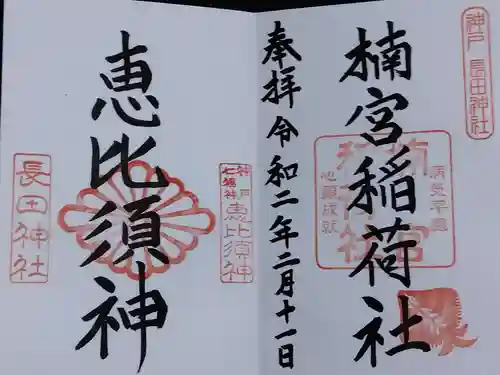 神戸 長田神社
楠宮稲荷社
病気平癒
楠宮稲荷社
心願成就
奉拝 令和二年二月十一日
恵比須神
神戸七福神
恵比須神
長田神社